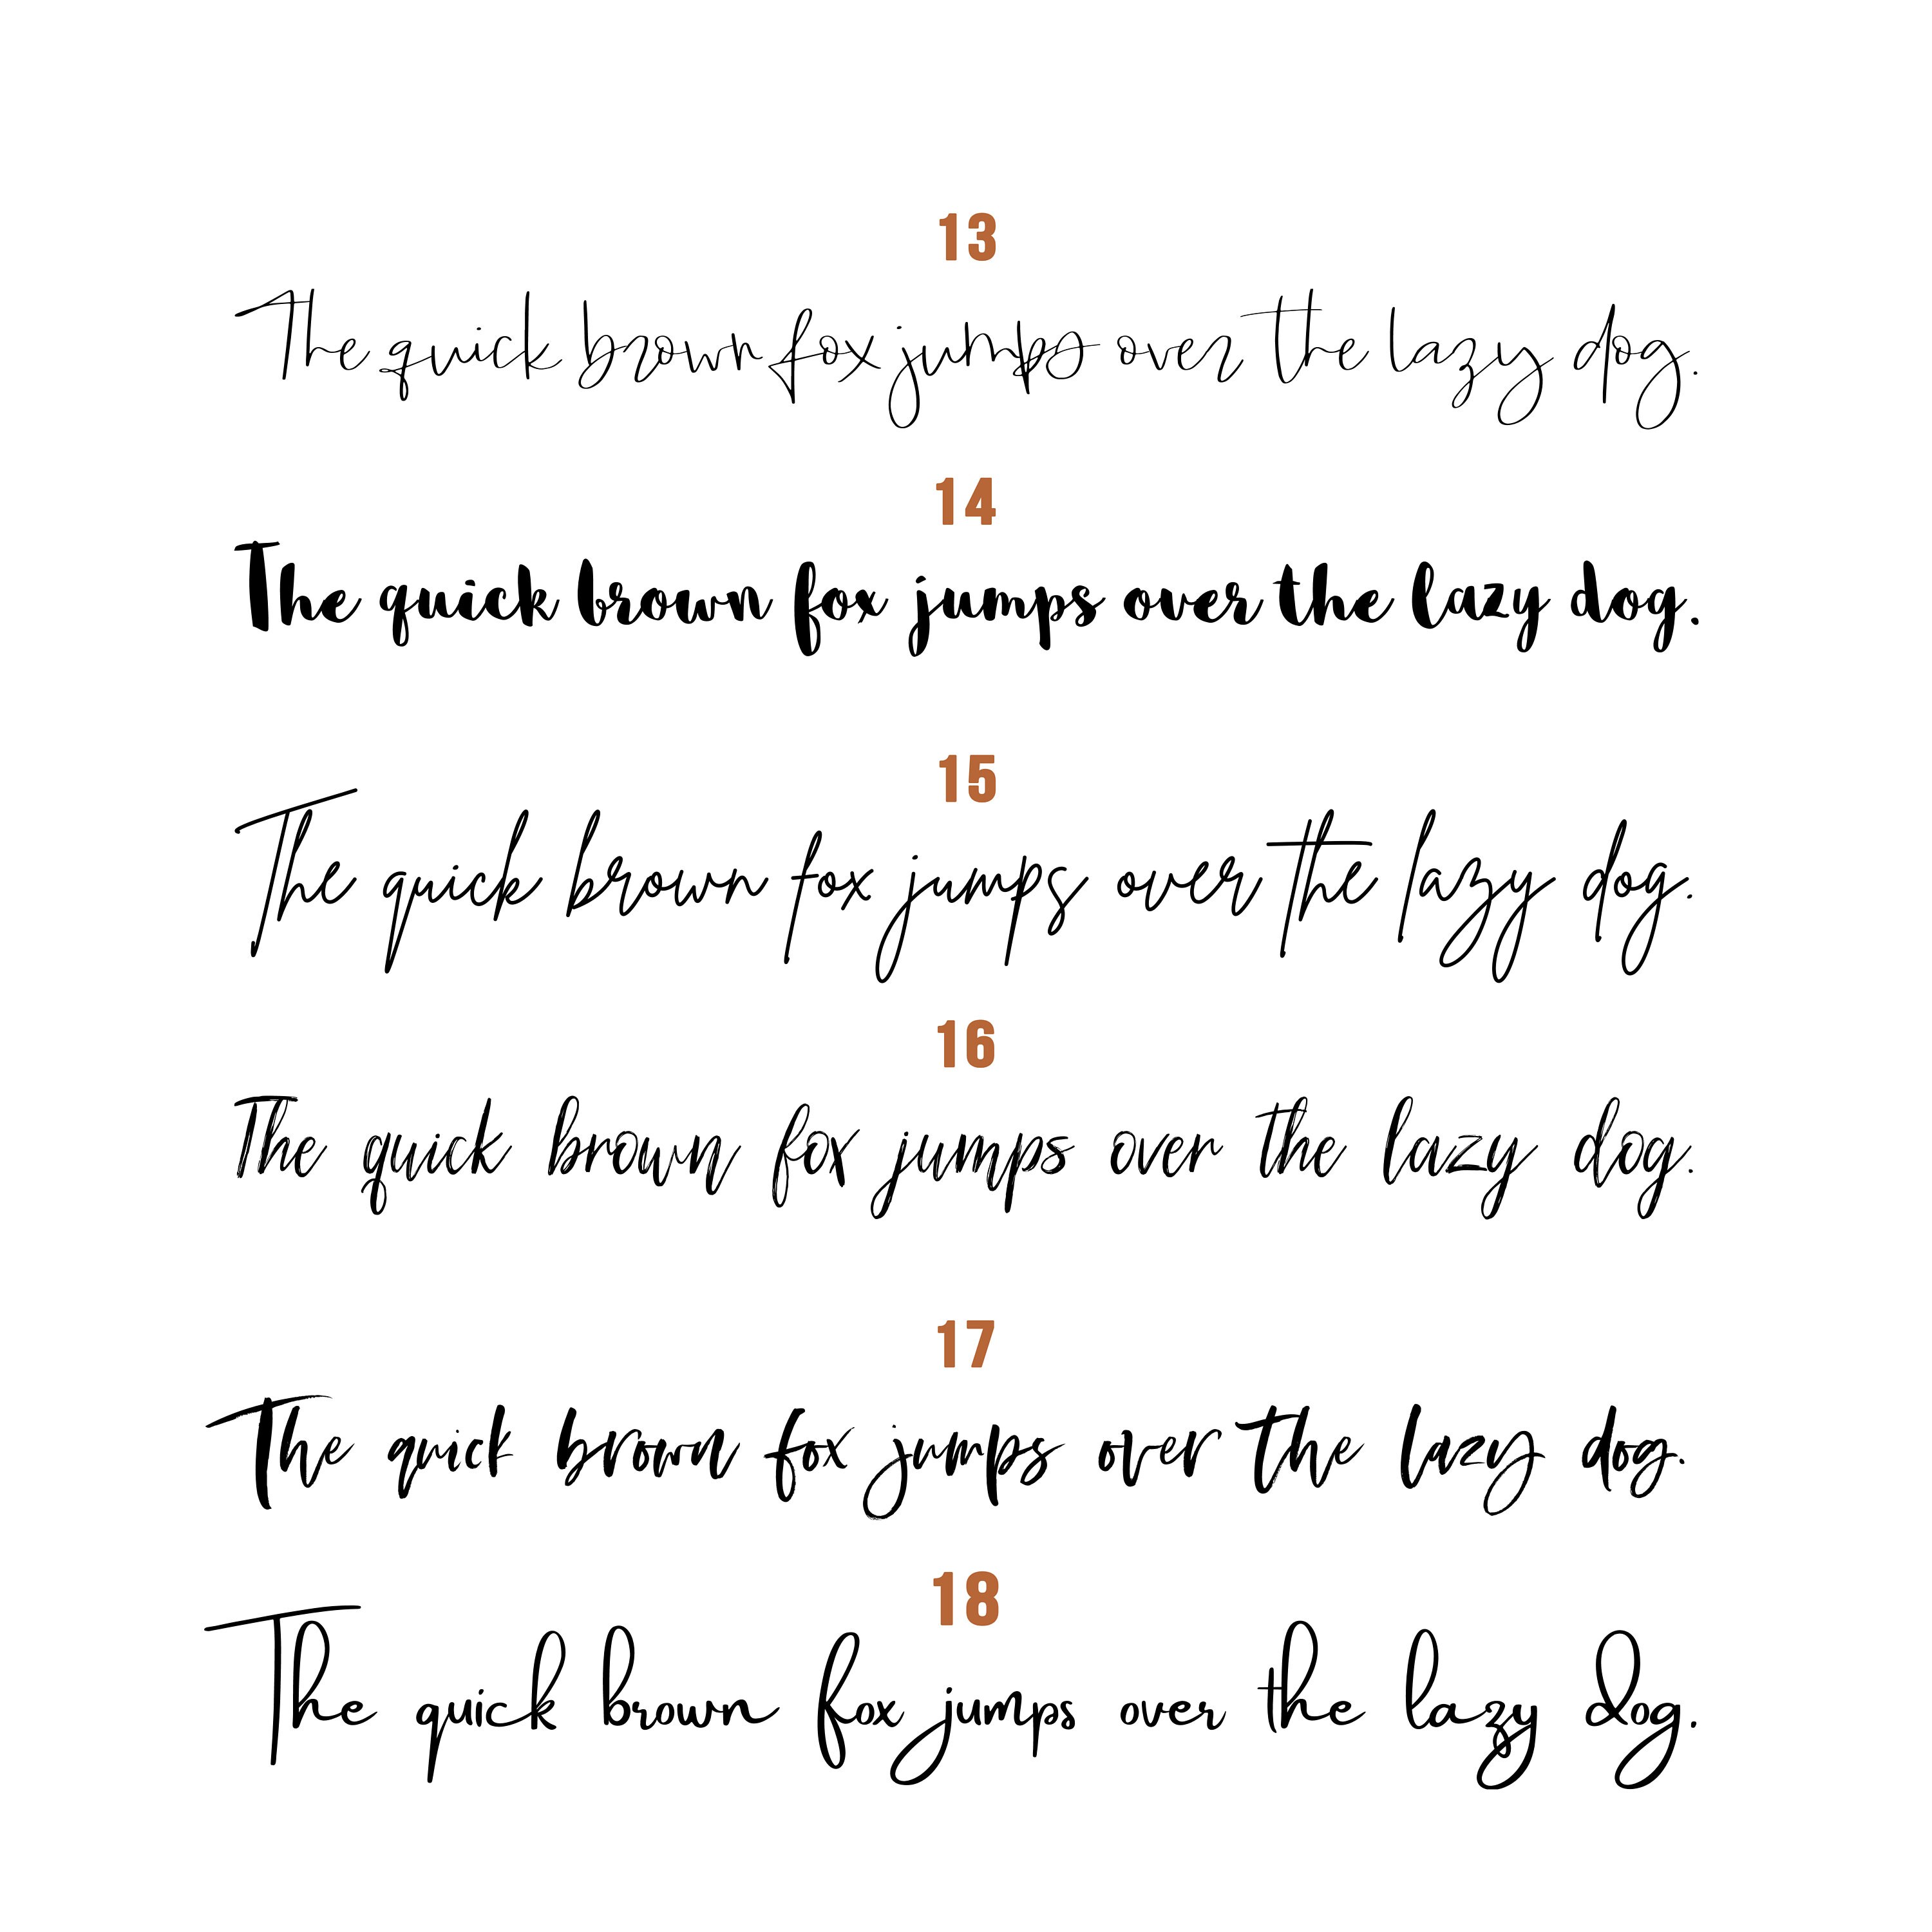 13
The quick brown fox jumps over the lazy dog.
14
The quick brown fox jumps over the lazy dog.
15
The quick brown fox jumps over the lazy dog.
16
The quick brown fox jumps over the lazy dog.
17
The quick brown fox jumps over the lazy dog.
18
The quick brown fox jumps over the lazy dog.